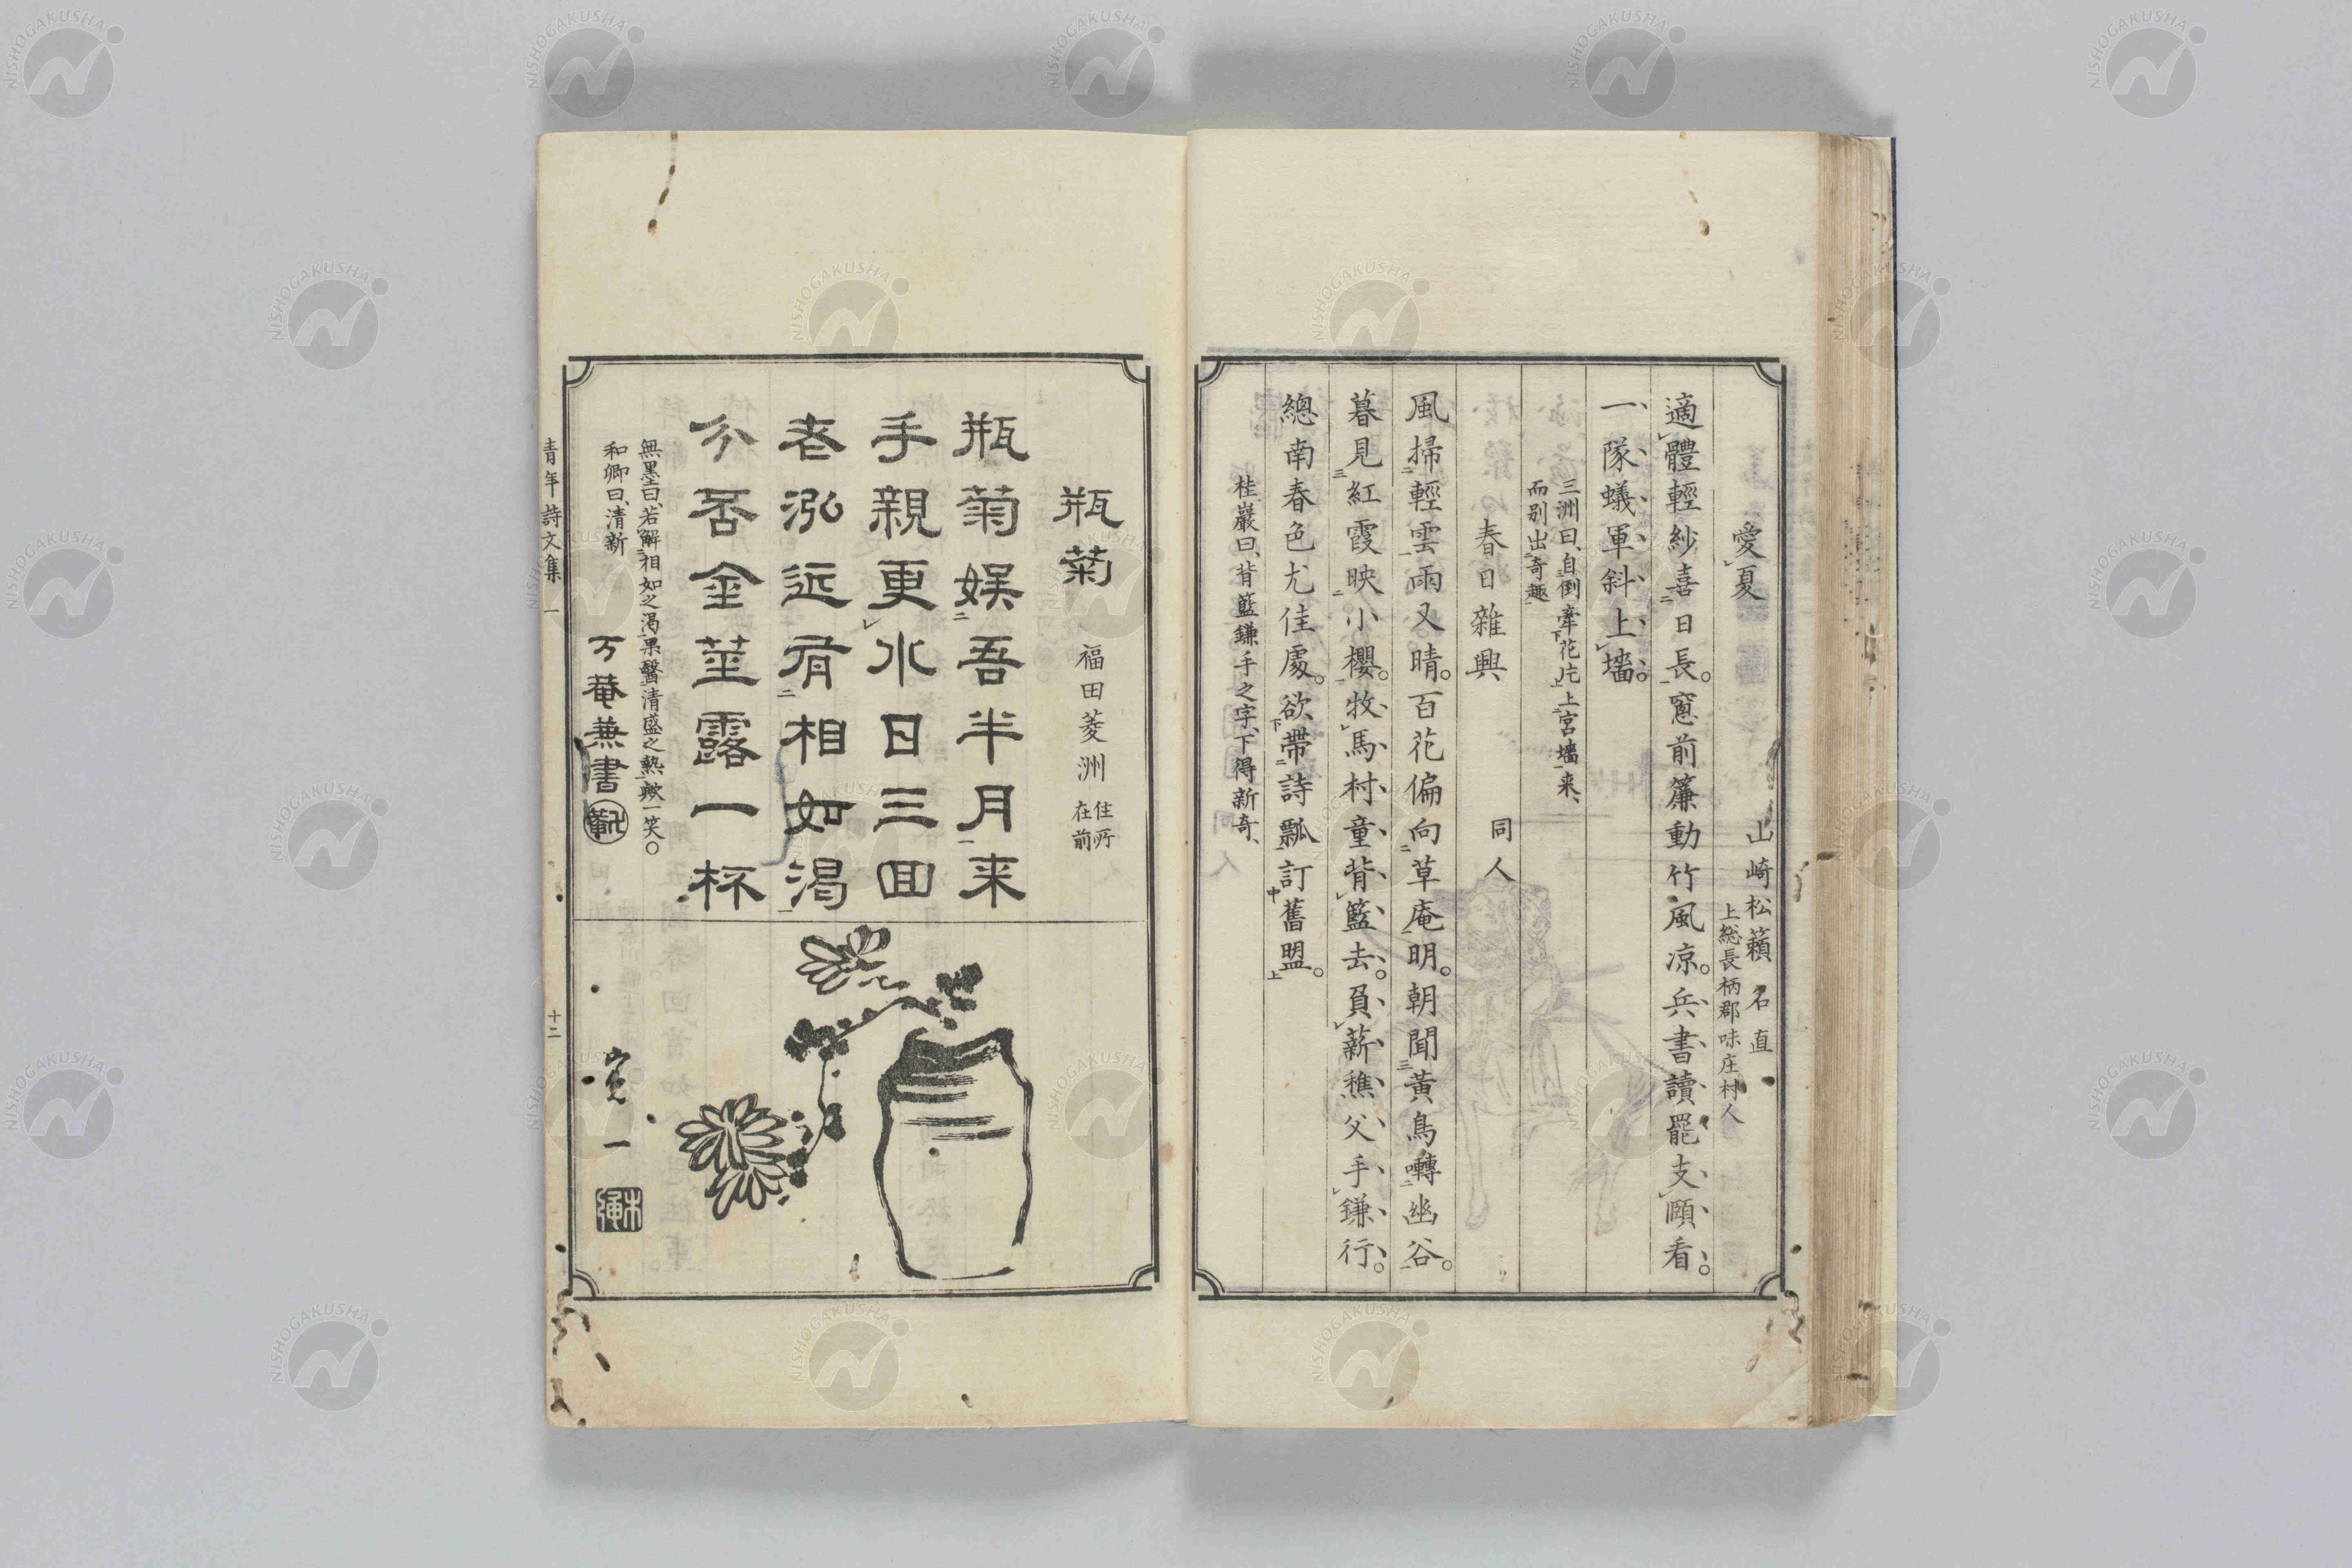 愛夏
山崎松籟 名直
上総長柄郡味庄村人
適體輕紗喜日長。窻前簾動竹風凉。兵書讀罷支頤看。
一隊蟻軍斜上墻。
三洲曰、自倒牽花片上宮墻来、
而別出奇趣
春日雜興 同人
風掃輕雲雨又晴。百花偏向草庵明。朝聞黃鳥囀幽谷。
暮見紅霞映小櫻。牧馬村童背籃去。負薪樵父手鎌行。
總南春色尤佳處。欲帶詩瓢訂舊盟。
桂巖曰、背籃鎌手之字、下得新奇、
瓶菊
福田菱洲 住所在前
瓶菊娯吾半月来
手親更水日三回
老泓近有相如渇
分否金莖露一杯
無墨曰、若解相如之渇、果醫清盛之熱歟一笑〇
和卿曰、清新
万菴兼書
寛一
青年詩文集 一
十二
NISHOGAKUSHA